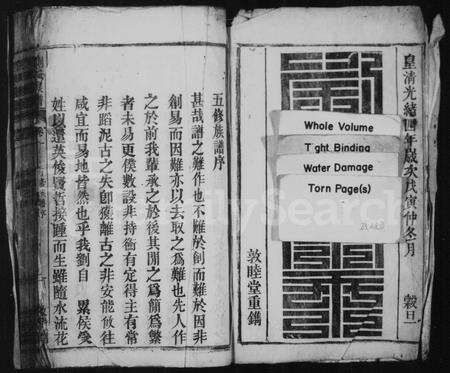 皇清光緒四年歲次戊寅仲冬月 穀旦
Whole Volume
Tight Binding
Water Damage
Torn Page(s)
敦睦堂重鐫
五修族譜序
甚哉譜之難作也不難於創而難於因非
創易而因難亦以去取之為難也先人作
之於前我輩承之於後其間之為簡為繁
者未易更僕數設非持衡有定得主有常
非蹈泥古之失即復離古之非安能攸往
咸宜而易地皆然也乎我劉自 累侯受
姓以還英俊賢哲接踵而生雖隨水流花